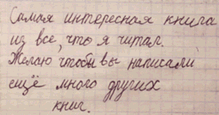 Самая интересная книга
из все, что я читал.
Желаю чтобы вы написали
ещё много других
книг.